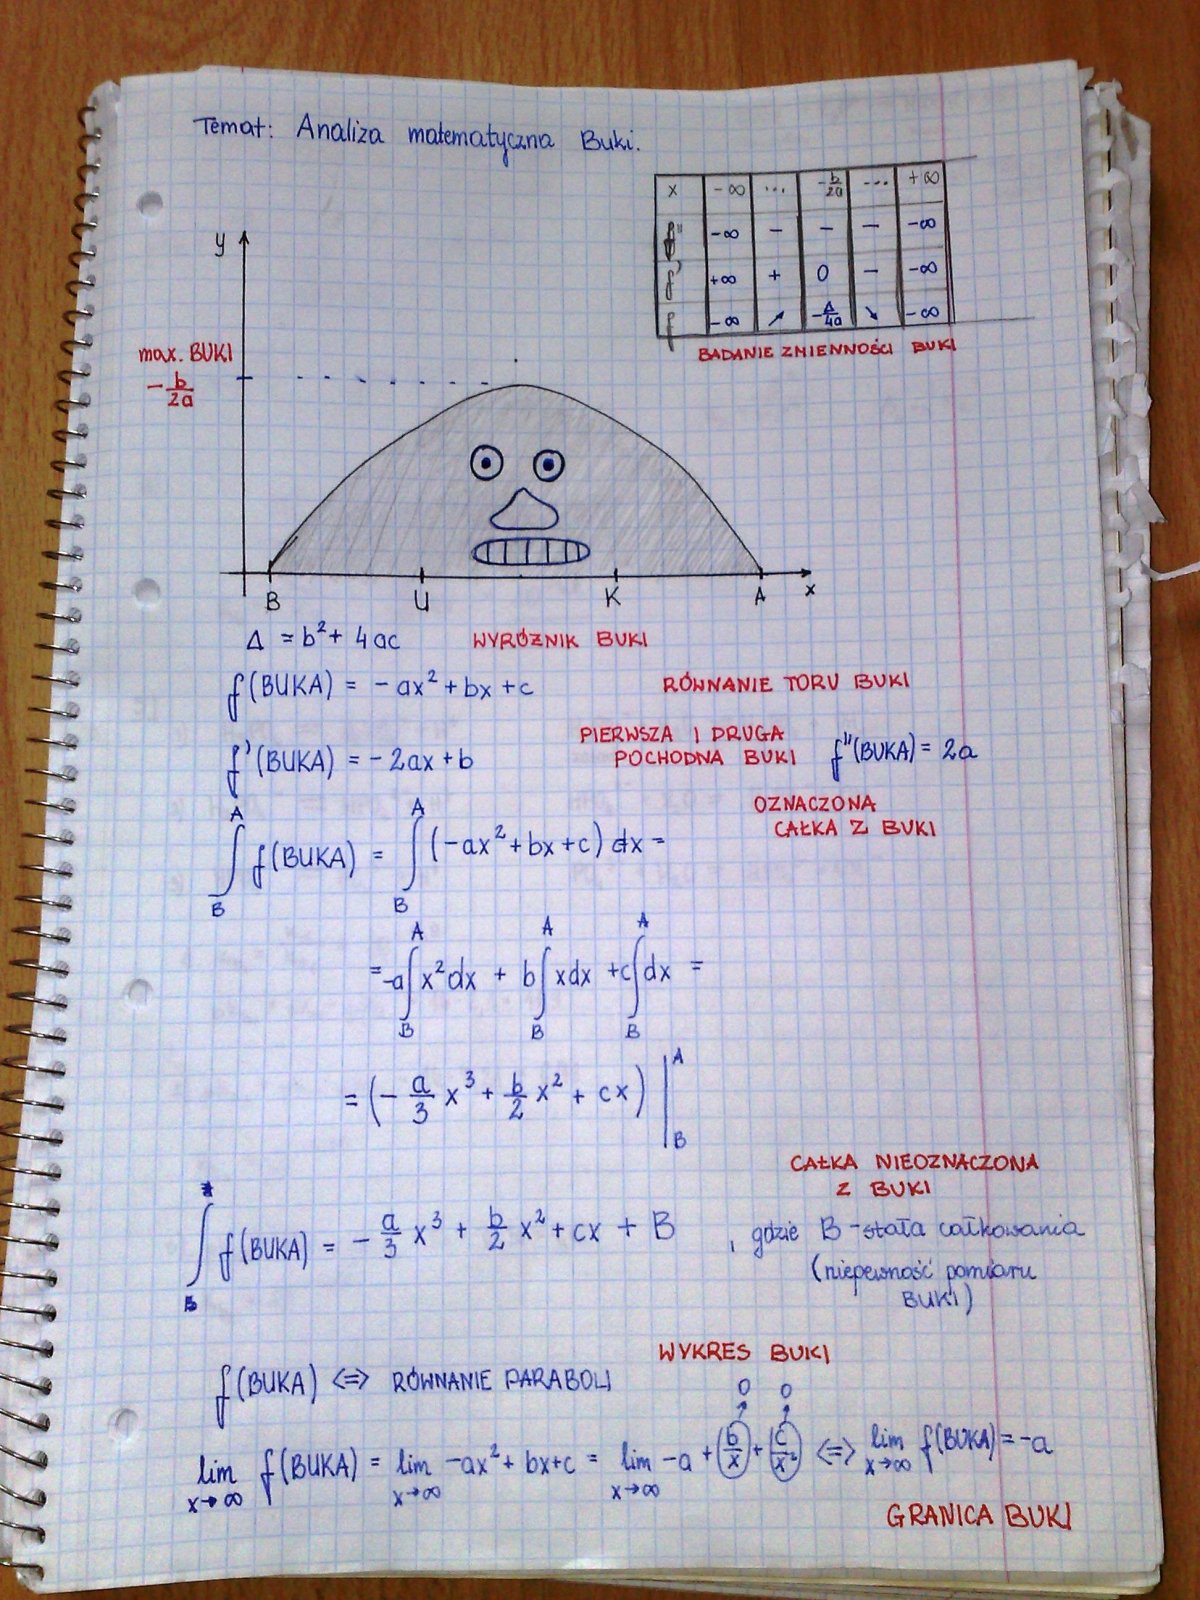 Temat: Analiza matematyczna Buki.
x -∞ ... -b/2a ... +∞
f'' -∞ - - - -∞
f' +∞ + 0 - -∞
f -∞ ↗ -Δ/4a ↘ -∞
BADANIE ZMIENNOŚCI BUKI
y
max. BUKI
-b/2a
B U K A x
Δ = b² + 4ac WYRÓŻNIK BUKI
f(BUKA) = -ax² + bx + c RÓWNANIE TORU BUKI
PIERWSZA I DRUGA
f'(BUKA) = -2ax + b POCHODNA BUKI f''(BUKA) = 2a
OZNACZONA
CAŁKA Z BUKI
∫_B^A f(BUKA) = ∫_B^A (-ax² + bx + c) dx =
= -a∫_B^A x²dx + b∫_B^A xdx + c∫_B^A dx =
= (-a/3 x³ + b/2 x² + cx) |_B^A
CAŁKA NIEOZNACZONA
Z BUKI
∫ f(BUKA) = -a/3 x³ + b/2 x² + cx + B , gdzie B - stała całkowania
(niepewność pomiaru
BUKI)
WYKRES BUKI
f(BUKA) <=> RÓWNANIE PARABOLI
0 0
lim x→∞ f(BUKA) = lim x→∞ -ax² + bx + c = lim x→∞ -a + (b/x) + (c/x²) <=> lim x→∞ f(BUKA) = -a
GRANICA BUKI